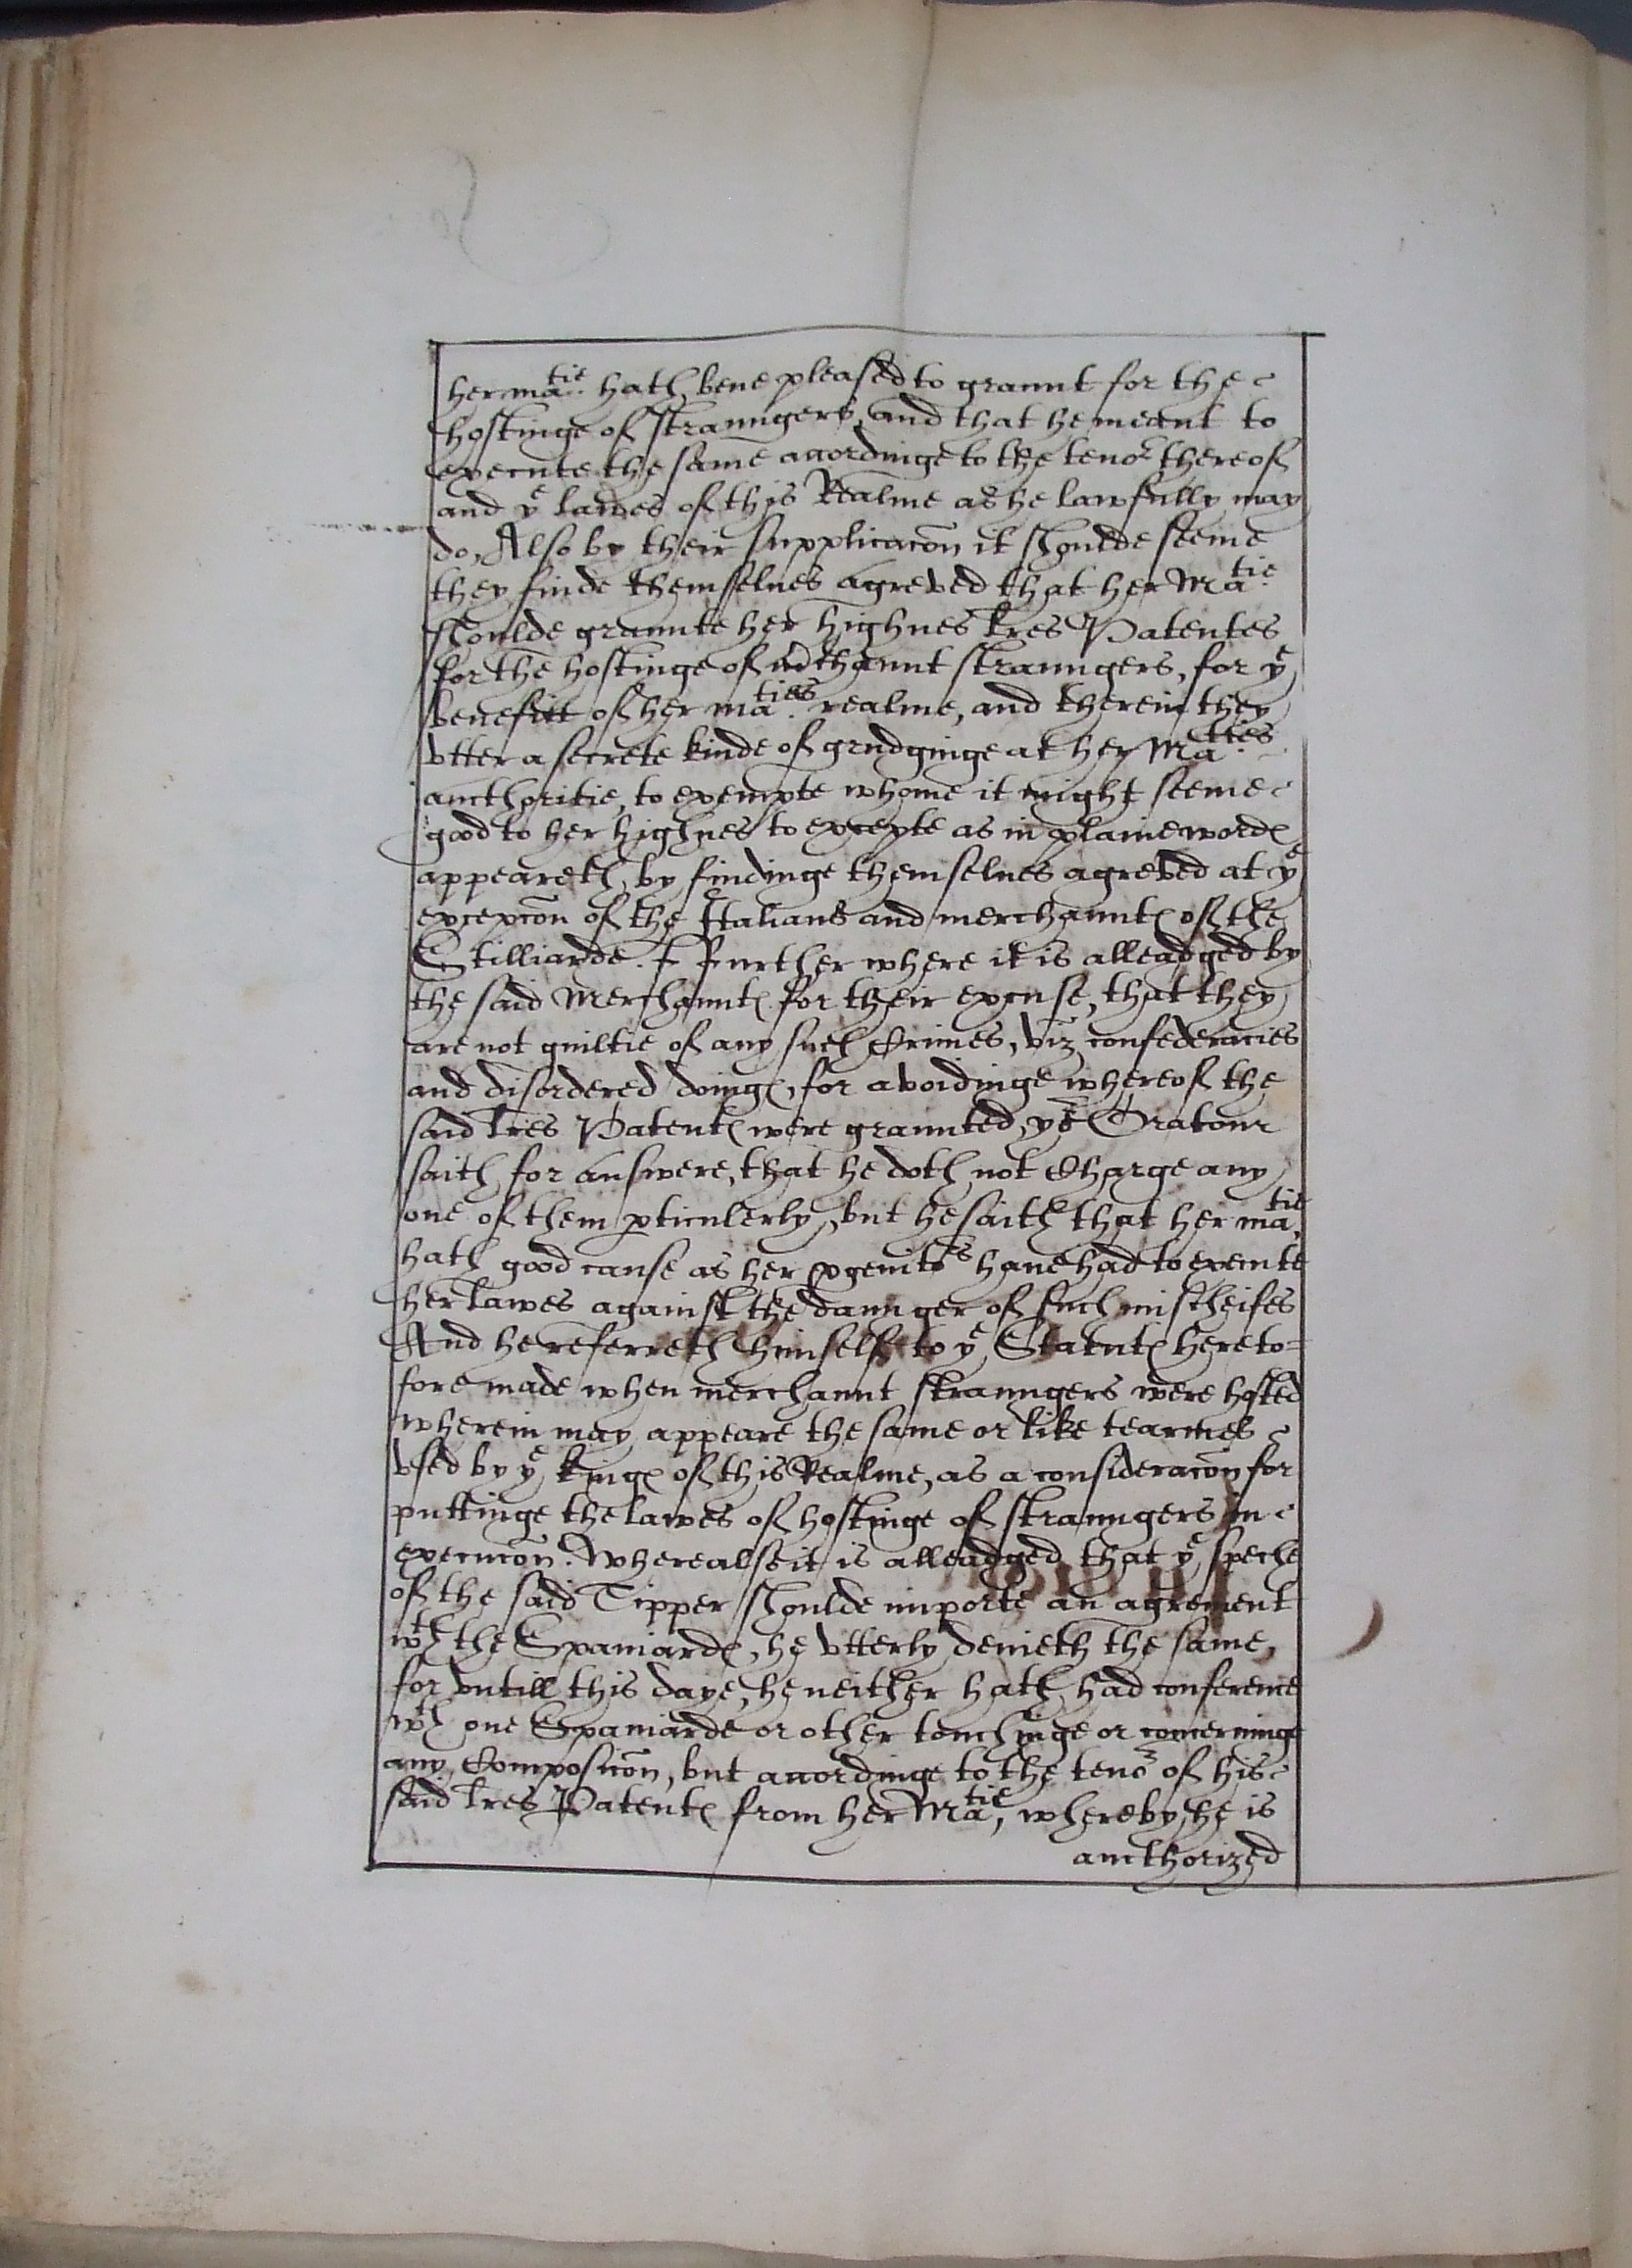 her ma:tie hath bene pleased to graunt for the
hostinge of straungers, and that he meant to
execute the same accordinge to the tenor thereof
and ye lawes of this Realme as he lawfully may
do, Also by their supplicacõn it shoulde seeme
they finde themselues agreved that her Ma:tie
shoulde graunte her highnes lres Patentes
for the hostinge of mchaunt straungers, for ye
benefitt of her ma:ties realme, and therein they
vtter a secrete kinde of grudginge at her Ma:ties
aucthoritie, to exempte whome it might seeme
good to her highnes to excepte as in plaine wordes
appeareth, by findinge themselues agreved at ye
excepcõn of the Italians and merchauntes of the
Stilliarde. Further where it is alleadged by
the said Merchauntes for their excuse, that they
are not guiltie of any such Crimes, viz confederacies
and disordered doinges, for avoidinge whereof the
said lres Patentes were graunted, yor Oratour
saith for answere, that he doth not Charge any
one of them pticulerly, but he saith that her ma:tie
hath good cause as her pgenitors haue had to execute
her lawes against the daunger of such mischeifes
And he referreth himself to ye Statutes hereto=
fore made when merchaunt straungers were hosted
wherein may appeare the same or like tearmes
vsed by ye kinges of this Realme, as a consideracõn for
puttinge the lawes of hostinge of straungers in
execucõn. Where also it is alleadged that ye speche
of the said Tipper shoulde importe an agrement
wth the Spaniardes, he vtterly denieth the same,
for vntill this daye, he neither hath had conference
wth one Spaniarde or other touchinge or concerninge
any Composicõn, but accordinge to the tenor of his
said lres Patentes from her Matie, whereby he is
aucthorized